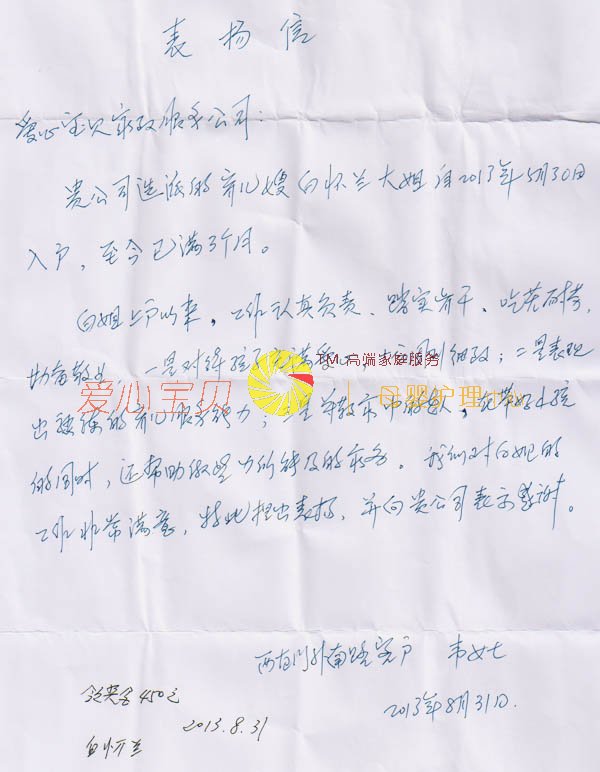 表扬信
爱心宝贝家政服务公司:
贵公司选派的育儿嫂白怀兰大姐自2013年5月30日
入户,至今已满3个月。
白姐上户以来,工作认真负责、踏实肯干、吃苦耐劳、
一是对待孩子充满爱心 细致;二是表现
TM 高端家庭服务
爱心宝贝
母婴护理
出 的育儿服务能力;三是 在带好小孩
的同时,还帮助做些力所能及的家务。我们对白姐的
工作非常满意,特此提出表扬,并向贵公司表示感谢。
西直门外南路客户 韦女士
2013年8月31日.
领奖金450元
2013.8.31
白怀兰